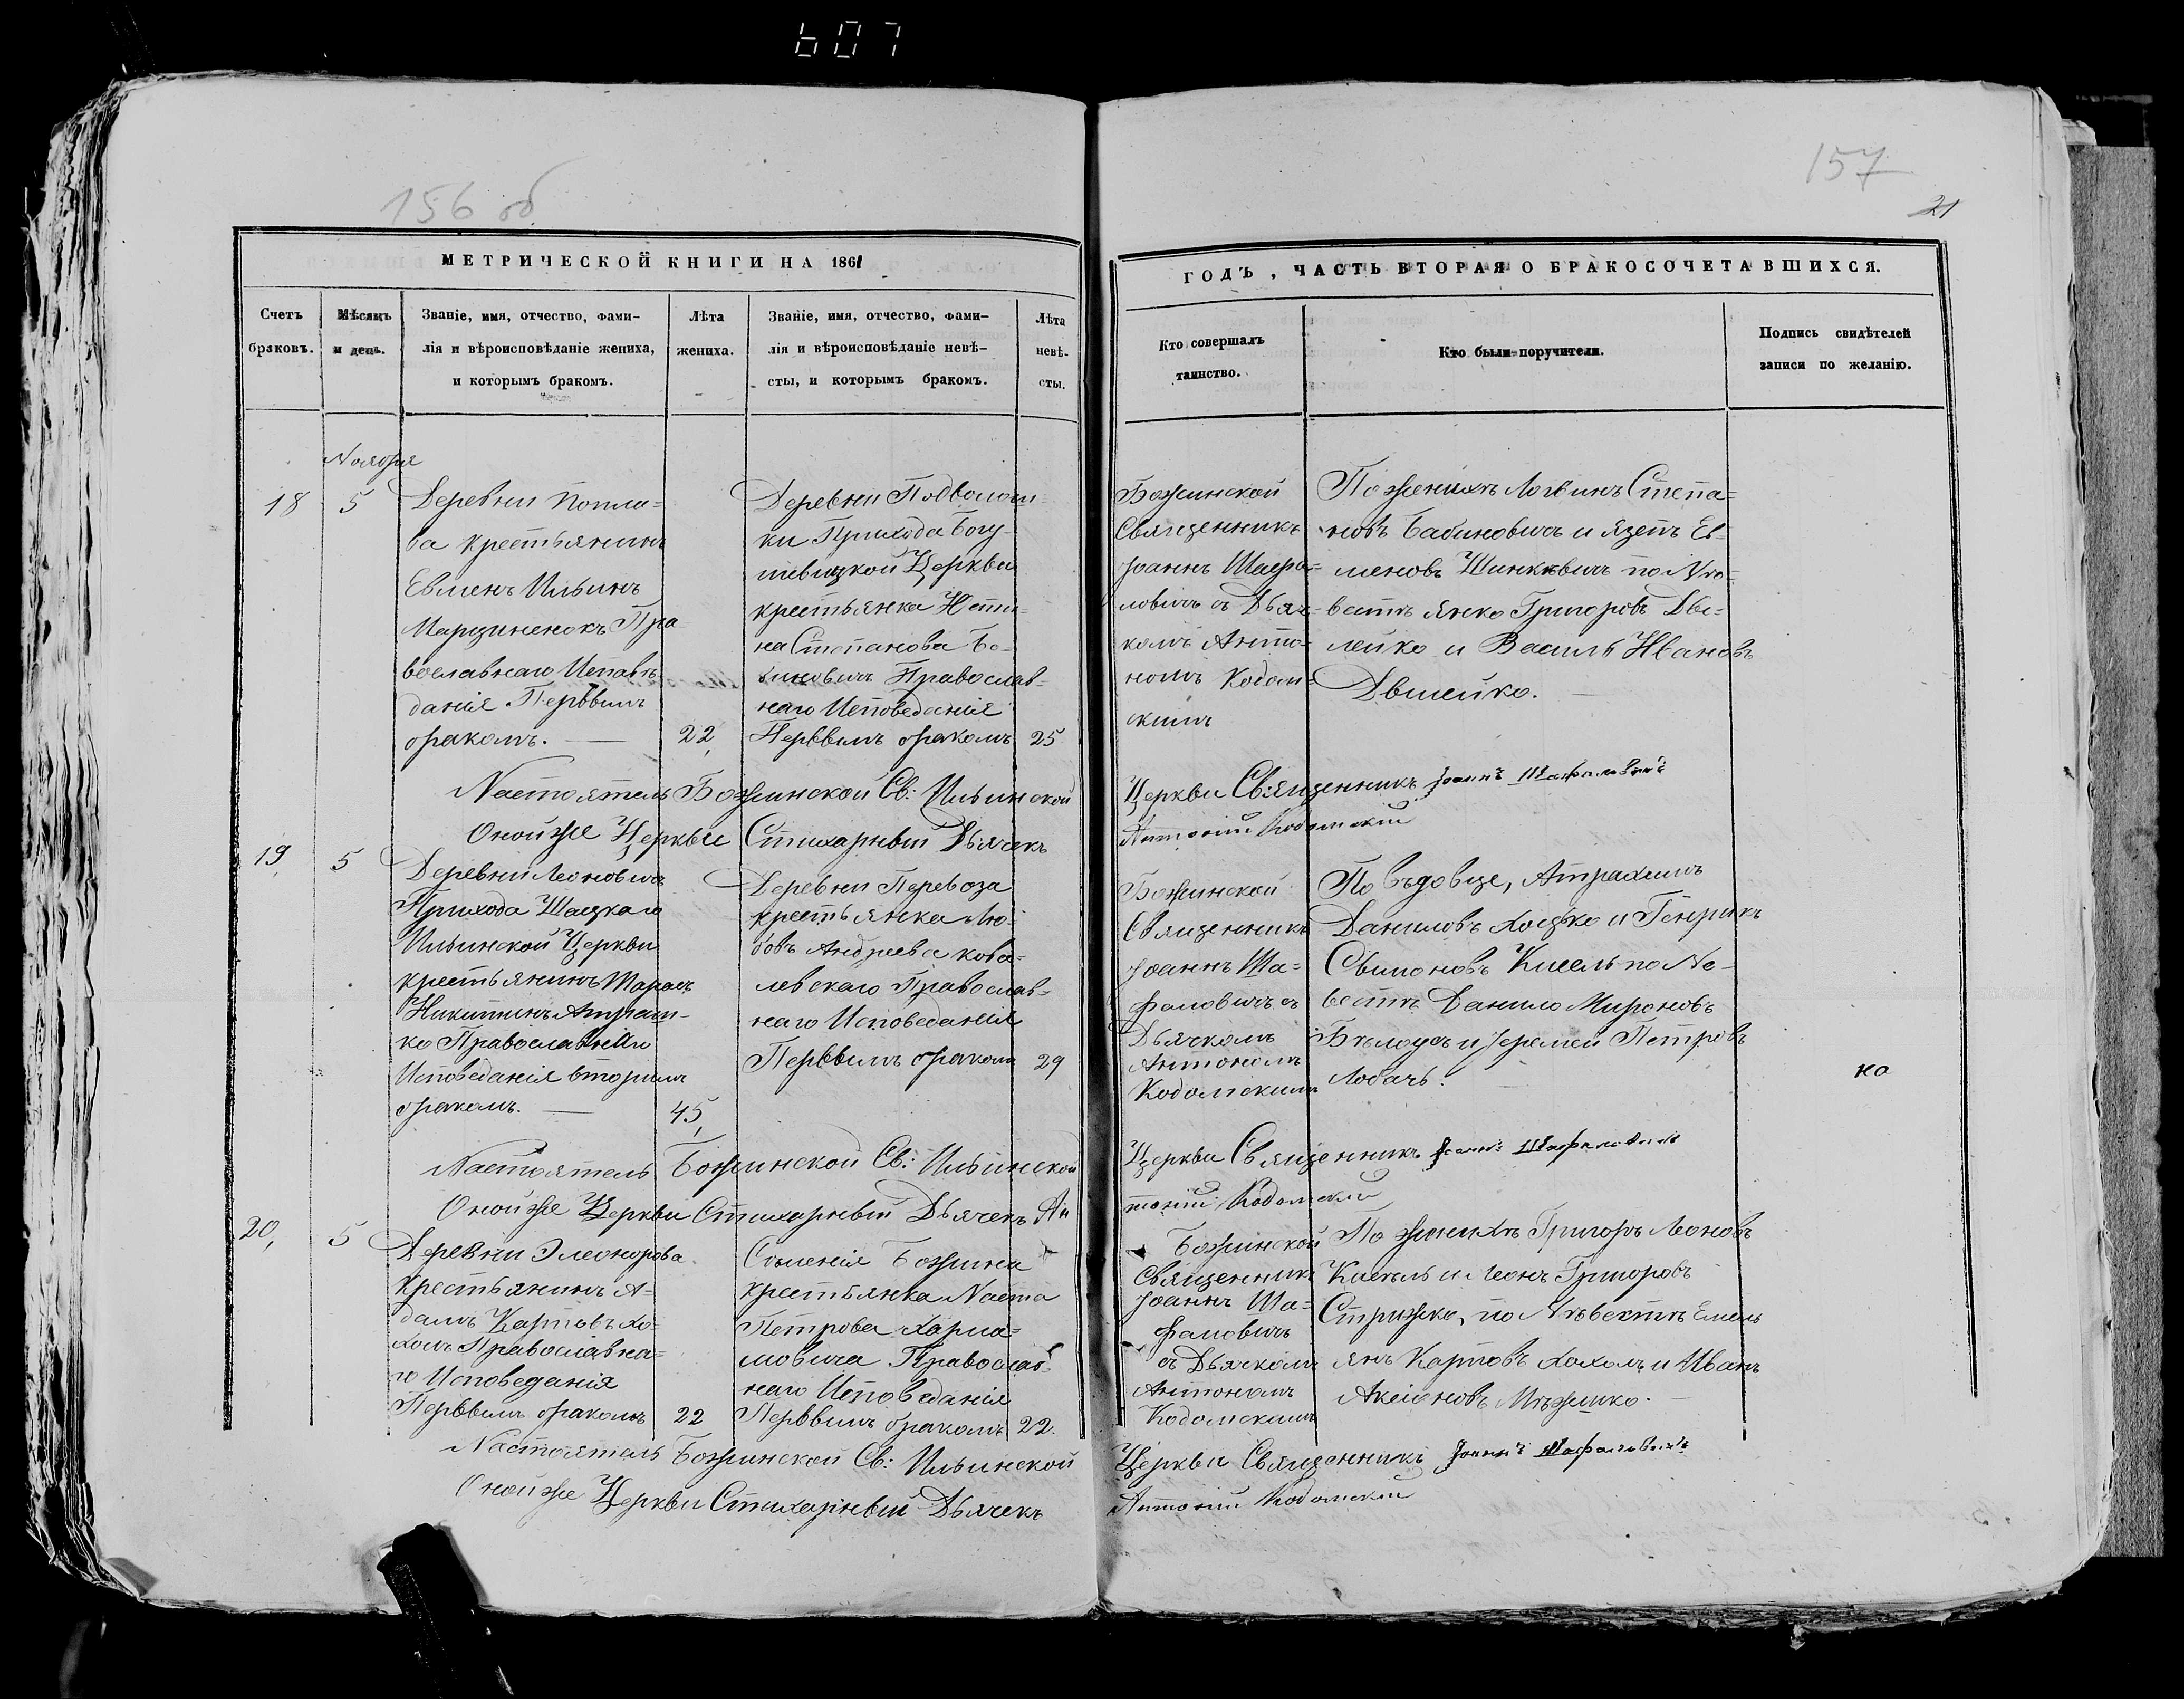 607
156 об
157
21
МЕТРИЧЕСКОЙ КНИГИ НА 1861
ГОДЪ, ЧАСТЬ ВТОРАЯ О БРАКОСОЧЕТАВШИХСЯ.
Счетъ
браковъ.
Мѣсяцъ
и день.
Званіе, имя, отчество, фами-
лія и вѣроисповѣданіе жениха,
и которымъ бракомъ.
Лѣта
жениха.
Званіе, имя, отчество, фами-
лія и вѣроисповѣданіе невѣ-
сты, и которымъ бракомъ.
Лѣта
невѣ-
сты.
Кто совершалъ
таинство.
Кто были поручители.
Подпись свидѣтелей
записи по желанію.
Ноября
18
5
Деревни Попла-
ва крестьянинъ
Евменъ Ильинъ
Марциненокъ Пра
вославнаго Исповѣ
данія Первымъ
бракомъ.
22,
Деревни
ки Прихода Богу-
шевицкой Церкви
крестьянка
на Степанова Ба-
биновичъ Православ-
наго Исповеданія
Первымъ бракомъ
25
Божинской
Священникъ
Іоаннъ Шафа-
ловичъ съ Дьяч-
комъ Анто-
номъ Кодом-
скимъ
По женихѣ Логвинъ Степа-
новъ Бабиновичъ и Язепъ Ев-
меновъ Шинкевичъ по Не-
вестѣ Янко Григоровъ Две-
лейко и Василь Ивановъ
Двилейко.
Настоятель Божинской Св: Ильинской Церкви Священникъ Іоаннъ Шафаловичъ
Оной же Церкви Стихарный Дьячекъ Антоній Кодомскій
19,
5
Деревни Леоновичъ
Прихода Шацкаго
Ильинской Церкви
крестьянинъ Тарасъ
Никитинъ Атраш-
ко Православнаго
Исповеданія вторымъ
бракомъ.
45,
Деревни Перевоза
крестьянка Лю-
бовъ Андреева Кова-
левскаго Православ-
наго Исповеданія
Первымъ бракомъ
29
Божинской
Священникъ
Іоаннъ Ша-
фаловичъ съ
Дьячкомъ
Антономъ
Кодомскимъ
По въдовце, Атрахимъ
Даниловъ Хоцько и Генрикъ
Сымоновъ Кисель по Не-
вестѣ Данило Мироновъ
Бѣлоусъ и Іеремей Петровъ
Лобачъ.
но
Настоятель Божинской Св: Ильинской Церкви Священникъ Іоаннъ Шафаловичъ
Оной же Церкви Стихарный Дьячекъ Антоній Кодомскій
20,
5
Деревни Элеонорова
крестьянинъ А-
дамъ Карповъ Хо-
холъ Православна-
го Исповеданія
Первымъ бракомъ
22
Селенія Божина
крестьянка Наста
Петрова
мовича Православ-
наго Исповеданія
Первымъ бракомъ
22.
Божинской
Священникъ
Іоаннъ Ша-
фаловичъ
съ Дьячкомъ
Антономъ
Кодомскимъ
По женихѣ Григоръ Леоновъ
Кисель и Леонъ Григоровъ
Стрижко, по Нѣвестѣ Емель
янъ Карповъ Хохолъ и Иванъ
Аксюновъ Мѣжишко.
Настоятель Божинской Св: Ильинской Церкви Священникъ Іоаннъ Шафаловичъ
Оной же Церкви Стихарный Дьячекъ Антоній Кодомскій